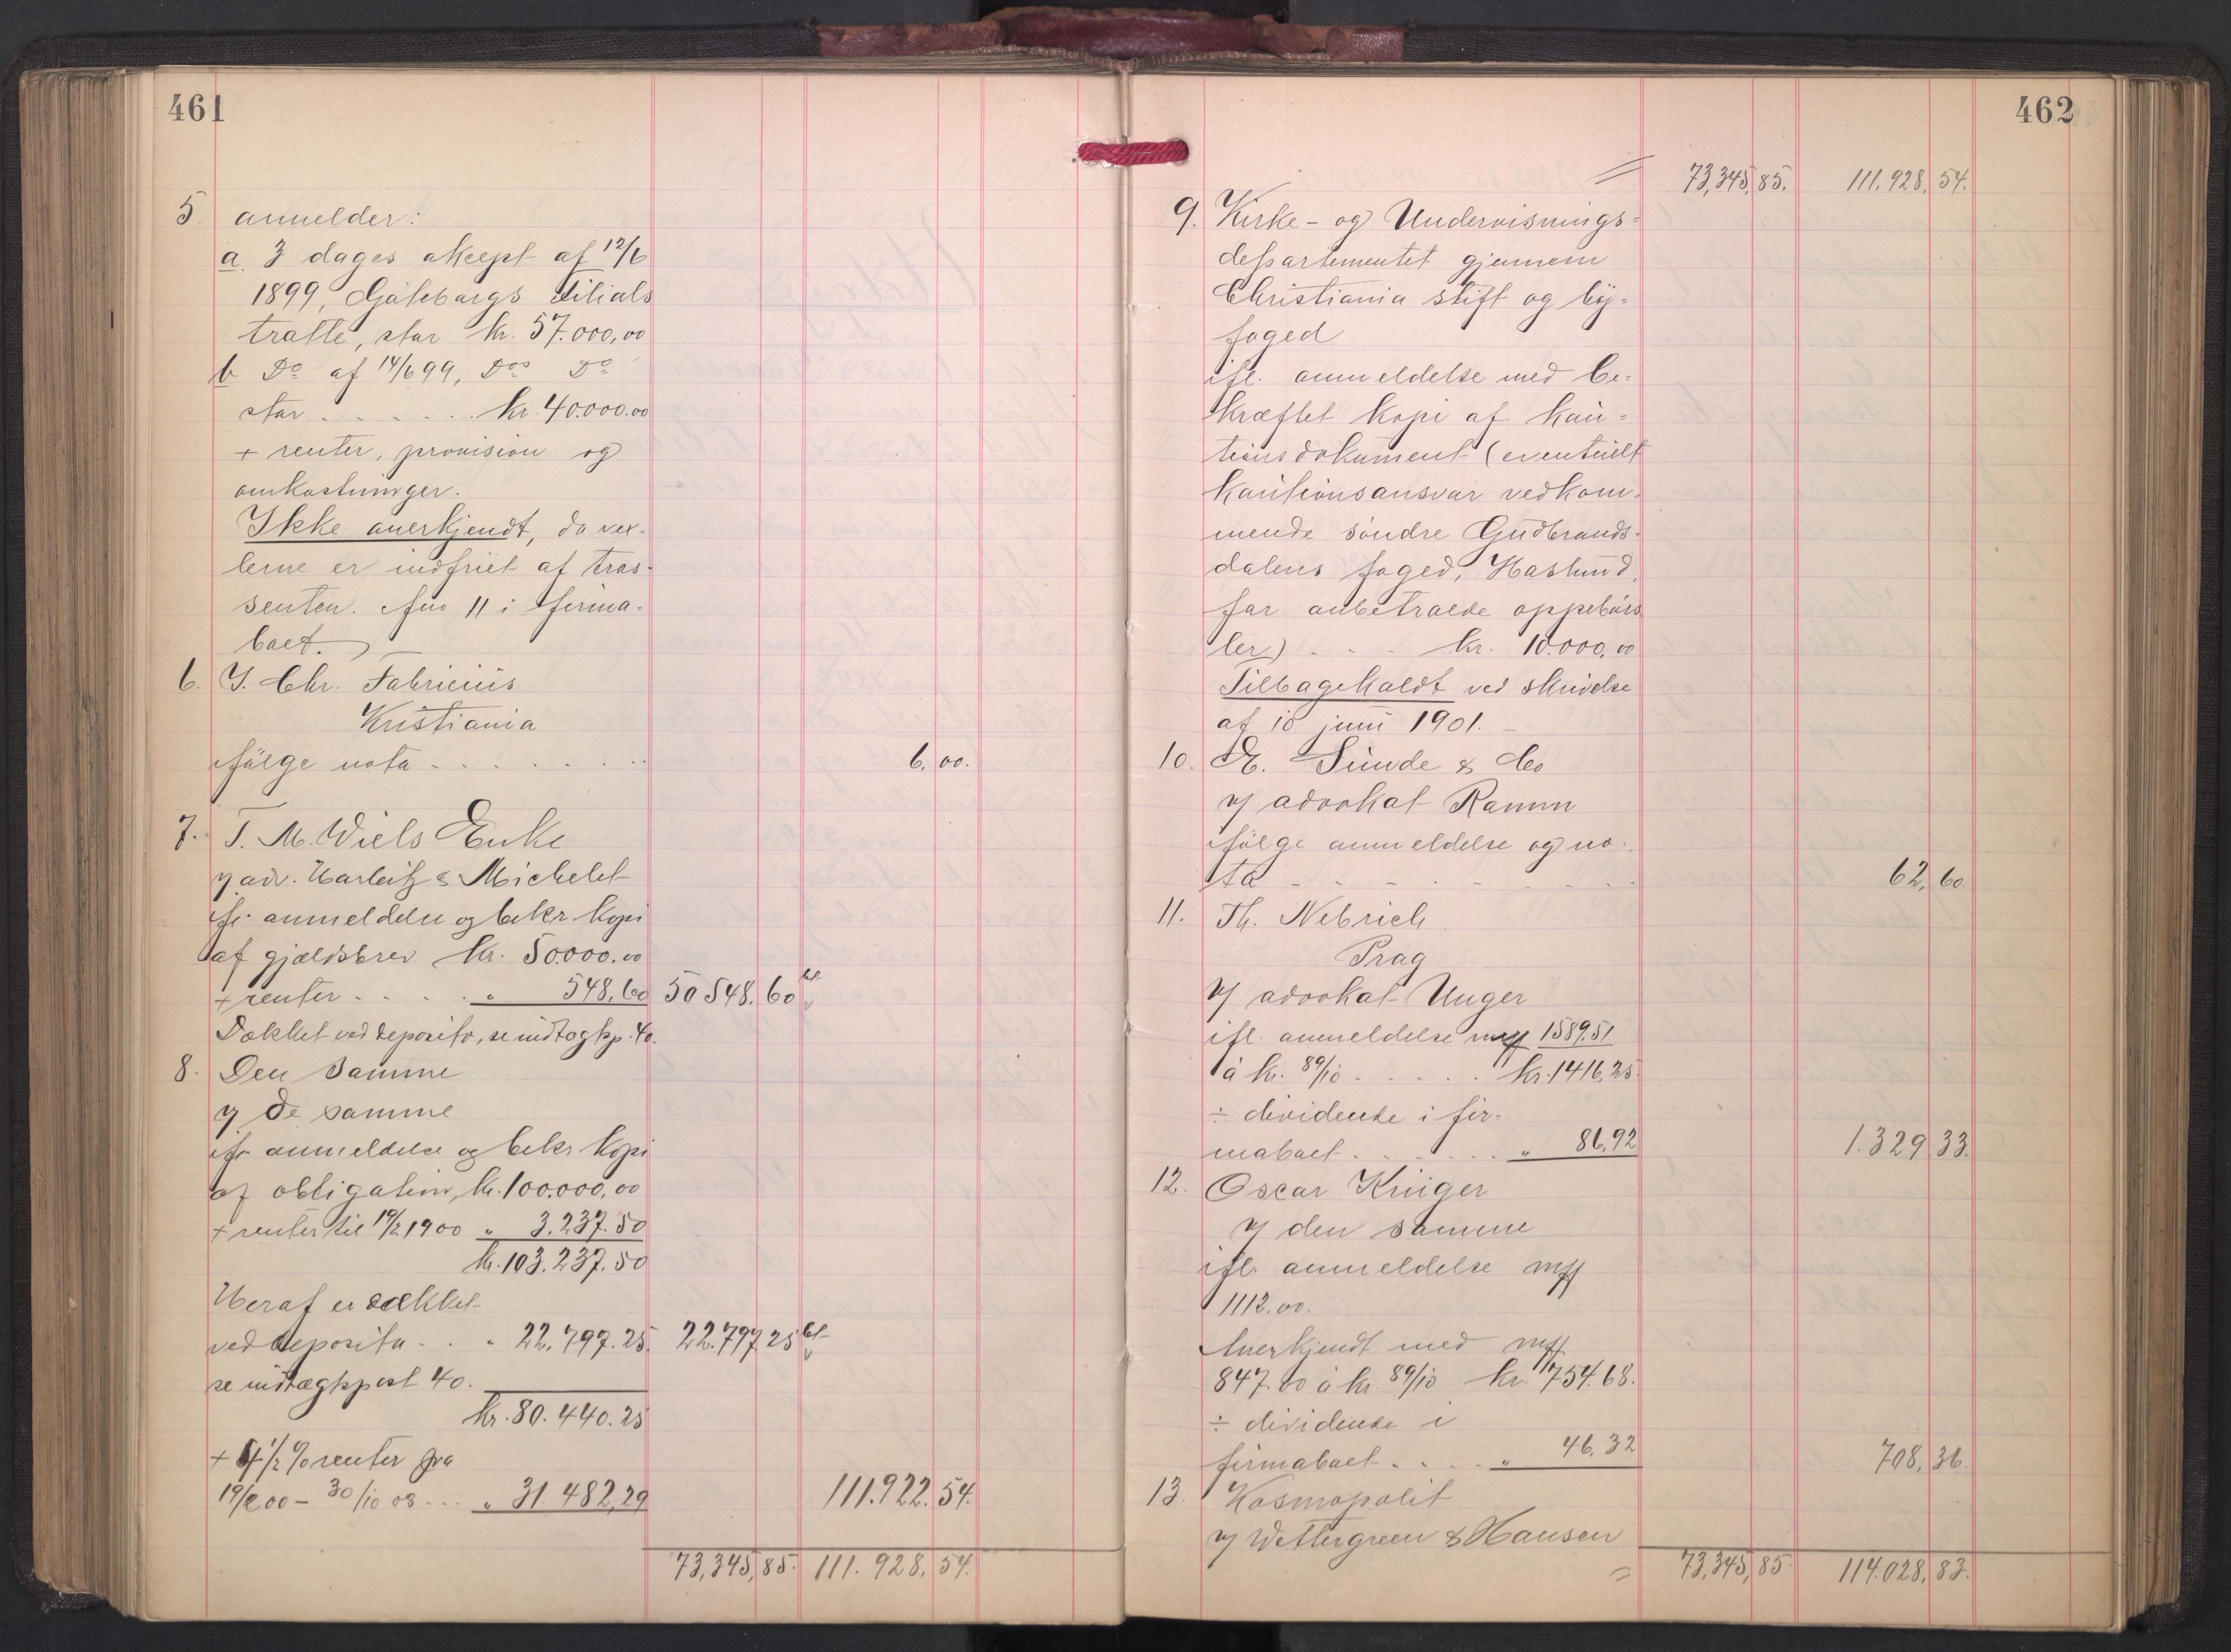 461
5. anmelder:
a. 3 dages akcept af 12/6
1899, Göteborgs Filials
tratte, stor kr. 57.000,00
b Do af 14/6 99, Dos Do
stor . . . . . . kr. 40.000.00
+ renter, provision og
omkostninger.
Ikke anerkjendt, da vex-
lerne er indfriet af tras-
senten. Jfr. No 11 i firma-
boet.
6. J. Chr. Fabricius
Kristiania
ifølge nota . . . . . . . 6,00.
7. T. M. Wiels Enke
v/ adv. Harbitz & Michelet
ifl. anmeldelse og bekr. kopi
af gjældsbrev kr. 50.000.00
+ renter . . . . . " 548,60 50548.60 bt
Dækket ved deposita, se indtægtsp. 40.
8. Den samme
v/ de samme
ifl. anmeldelse og bekr kopi
af obligation, kr. 100.000,00
+ renter til 19/2 1900 " 3.237.50
kr. 103.237.50
Heraf er dækket
ved deposita . . " 22.797.25. 22.797 25 bt
se indtægtspost 40.
kr. 80.440.25
+ 4 1/2 % renter fra
19/2 00 - 30/10 08 . . . " 31.482,29 111.922.54.
73,345,85. 111.928,54.
462
73,345,85. 111.928,54.
9. Kirke- og Undervisnings-
departementet gjennem
Christiania stift og by-
foged
ifl. anmeldelse med be-
kræftet kopi af kau-
tionsdokument (eventuelt
kautionsansvar vedkom-
mende søndre Gudbrands-
dalens foged, Haslund,
for anbetroede oppebørs
ler) . . . kr. 10.000,00
Tilbagekaldt ved skrivelse
af 10 juni 1901. -
10. E. Sunde & Co
v/ advokat Ramm
ifølge anmeldelse og no-
ta . . . . . . . . . 62,60.
11. Th. Nebrich
Prag
v/ advokat Unger
ifl. anmeldelse mk 1589.51
à kr. 89/10 . . . . . kr. 1416,25.
÷ dividende i fir-
maboet . . . . . . " 86,92 1.329 33.
12. Oscar Krüger
v/ den samme
ifl. anmeldelse mk
1112.00.
Anerkjendt med mk
847.00 à kr. 89/10 kr. 754.68.
÷ dividende i
firmaboet . . . . " 46,32 708,36.
13. Kosmopolit
v/ Wettergreen & Hansen
73,345,85. 114.028,83.